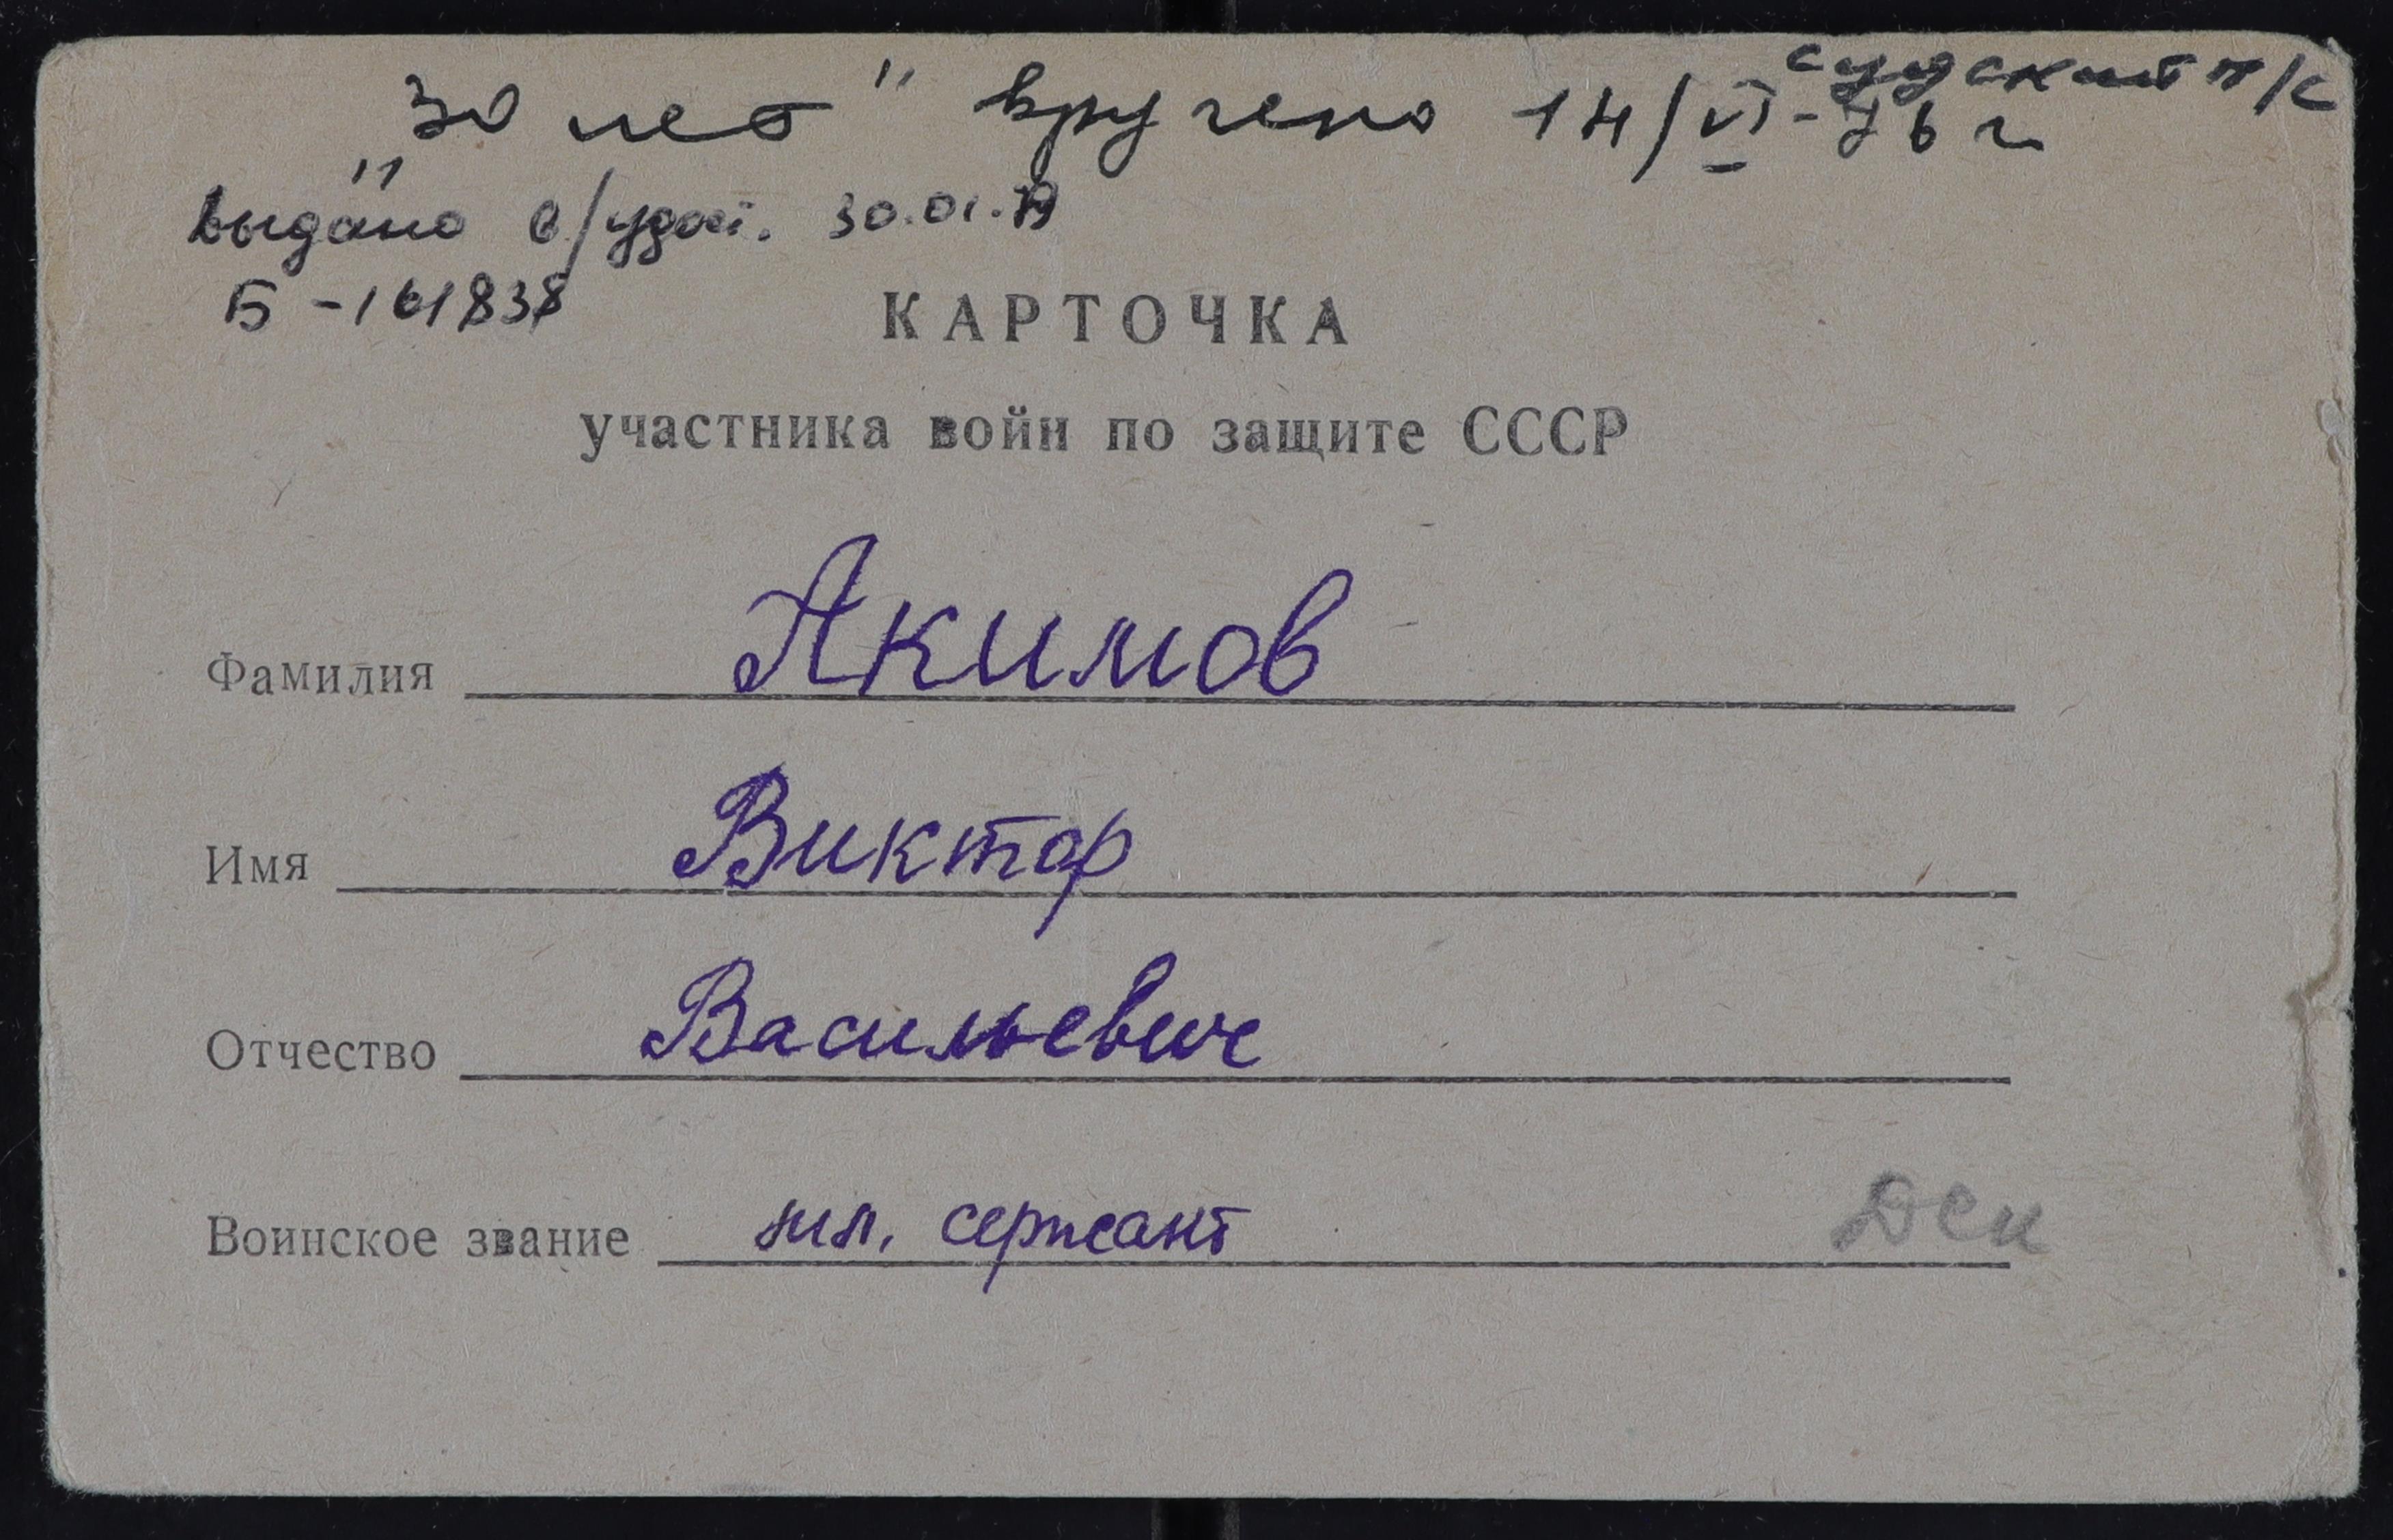 Судский п/с
"30 лет" вручено 14/VI-76 г
выдано с/удост. 30.01.79
Б-161838
КАРТОЧКА
участника войн по защите СССР
Фамилия Акимов
Имя Виктор
Отчество Васильевич
Воинское звание мл. сержант